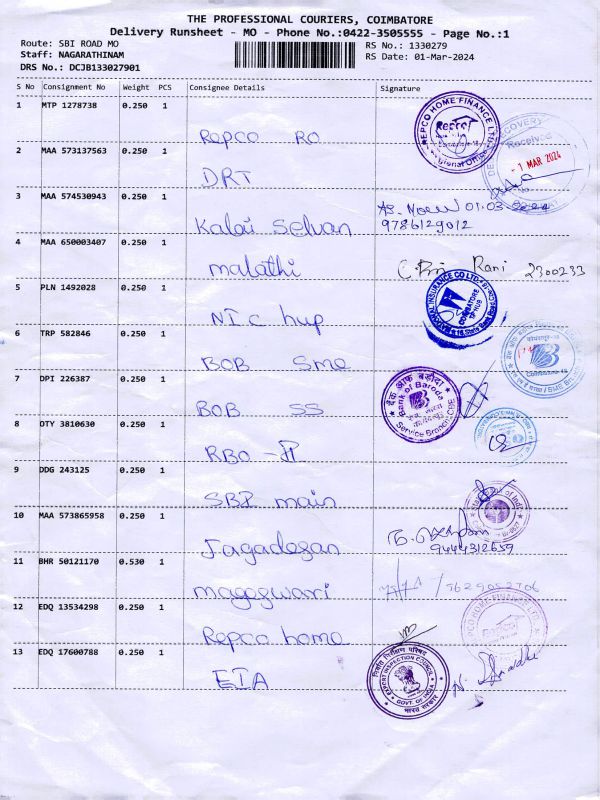 THE PROFESSIONAL COURIERS, COIMBATORE
Delivery Runsheet - MO - Phone No.:0422-3505555 - Page No.:1
Route: SBI ROAD MO
RS No.: 1330279
Staff: NAGARATHINAM
RS Date: 01-Mar-2024
DRS No.: DCJB133027901
S No Consignment No Weight PCS Consignee Details Signature
1 MTP 1278738 0.250 1
Repco RO
REPCO HOME FINANCE LTD
Repco
Regional Office
2 MAA 573137563 0.250 1
DRT
RECOVERY
Received
- 1 MAR 2024
3 MAA 574530943 0.250 1
Kalai Selvan
01.03.2024
9786129012
4 MAA 650003407 0.250 1
malathi
Rani 2300233
5 PLN 1492028 0.250 1
NIC hup
INSURANCE CO LTD
COIMBATORE
6 TRP 582846 0.250 1
BOB Sme
7 DPI 226387 0.250 1
BOB SS
बैंक ऑफ बड़ौदा
Bank of Baroda
Service Branch, CBE
8 OTY 3810630 0.250 1
RBO - II
9 DDG 243125 0.250 1
SBI main
State Bank of India
10 MAA 573865958 0.250 1
Jagadesan
9444312659
11 BHR 50121170 0.530 1
mageswari
9629052706
12 EDQ 13534298 0.250 1
Repco home
REPCO HOME FINANCE LTD
13 EDQ 17600788 0.250 1
EIA
निर्यात निरीक्षण परिषद
EXPORT INSPECTION COUNCIL
GOVT. OF INDIA
भारत सरकार